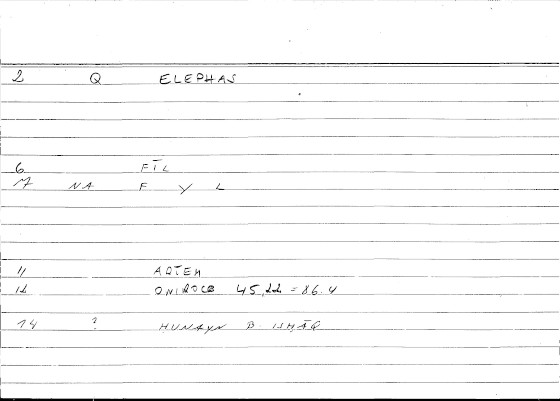 2 Q ELEPHAS
6 FĪL
7 NA F Y L
11 ARTEM
12 ONIROCR 45,22 = 86.4
14 ? HUNAYN B. ISḤĀQ